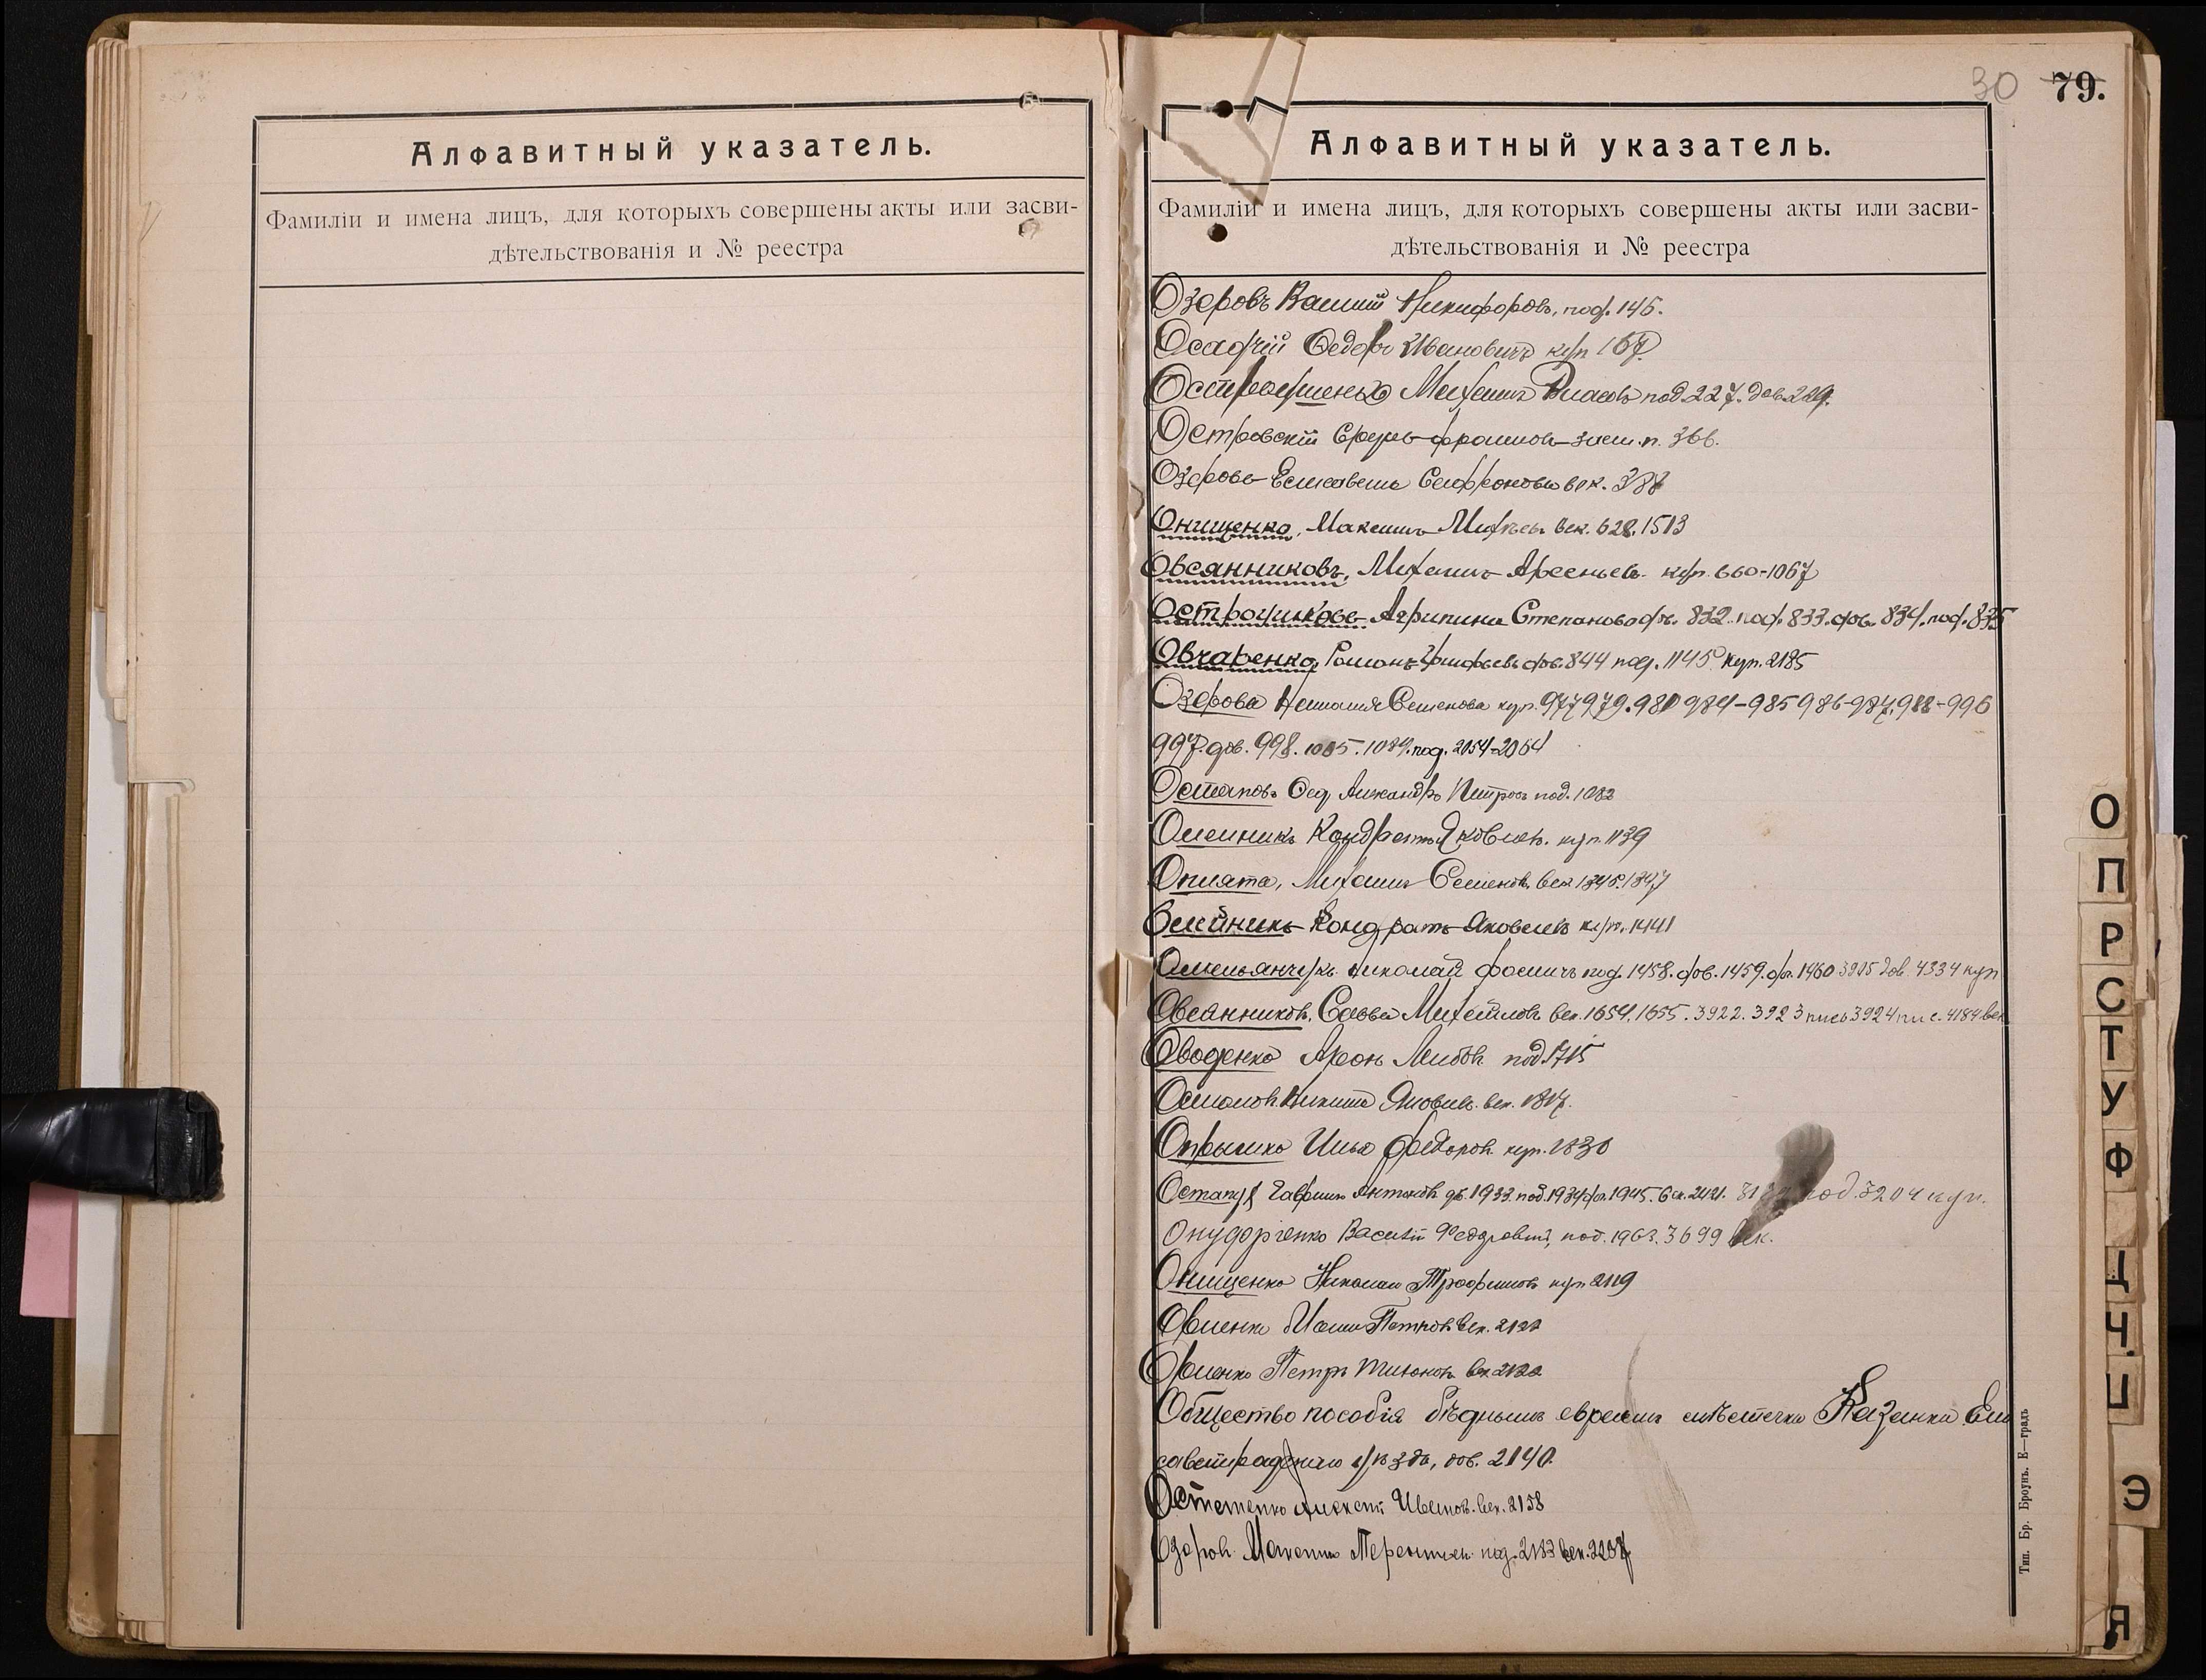 Алфавитный указатель.
Фамиліи и имена лицъ, для которыхъ совершены акты или засви-
дѣтельствованія и № реестра
30 79.
Алфавитный указатель.
Фамиліи и имена лицъ, для которыхъ совершены акты или засви-
дѣтельствованія и № реестра
Озеровъ Никифоровъ, под. 145.
Осадчій Федоръ Ивановичъ куп 167.
Михаилъ Власовъ под. 227. дов. 229.
Островскій 366.
Озерова Елисавета век. 388
Онищенко, Максимъ век. 628. 1513
Овсянниковъ, Михаилъ Арсеньевъ. куп. 660-1067
Острочикова Агрипина Степанова дов. 832. под. 833. дов. 834. под. 835
Овчаренко, Романъ дов. 844 под. 1145. куп. 2185
Озерова Наталія Семенова куп. 977 979. 980 984-985 986-987, 988-996
997. дов. 998. 1085. 1089. под. 2054-2064
Остаповъ Александръ Петровъ под. 1082
Олейникъ Кондратъ Яковлевъ. куп. 1139
Опията, Михаилъ Семеновъ век 1847
Олейникъ Кондратъ Яковлевъ куп. 1441
Омельянчукъ Николай Фомичъ под. 1458. дов. 1459. дов. 1460 3905 дов. 4334 куп
Овсянниковъ, Савва Михайловъ век. 1654. 1655. 3922. 3923 пись 3924 пис. 4184 век
Оводенко Аронъ Лейбовъ под 1715
Никита Яковлевъ век. 1817.
Опрышко Илья Федоровъ куп. 1830
Остапчукъ Гаврилъ Антоновъ дов. 1933. под. 1934 дов. 1945. век. 2421. под. 3204 куп.
Василій под. 1963. 3699 век.
Онищенко Николай Трофимовъ куп 2119
Овиенко Петровъ век. 2122
Овиенко Петръ Тихоновъ век 2122
Общество пособія бѣднымъ евреямъ мѣстечка Казанки Ели
саветградскаго уѣзда, дов. 2140.
Остапенко Алексѣй Ивановъ век. 2158
Озеровъ Терентьевъ под. 2183 век. 2287
О
П
Р
С
Т
У
Ф
Ц
Ч
Ш
Э
Я
Тип. Бр. Броунъ. Е—градъ